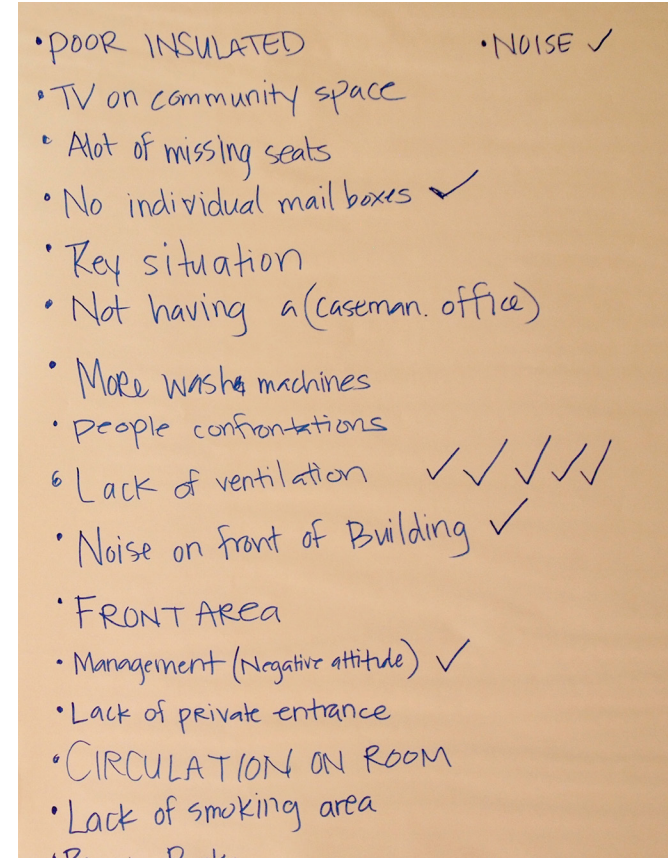 • POOR INSULATED • NOISE ✓
• TV on community space
• Alot of missing seats
• No individual mail boxes ✓
• Key situation
• Not having a (caseman. office)
• More wash machines
• people confrontations
• Lack of ventilation ✓ ✓ ✓ ✓ ✓
• Noise on front of Building ✓
• FRONT AREA
• Management (Negative attitude) ✓
• Lack of private entrance
• CIRCULATION ON ROOM
• Lack of smoking area